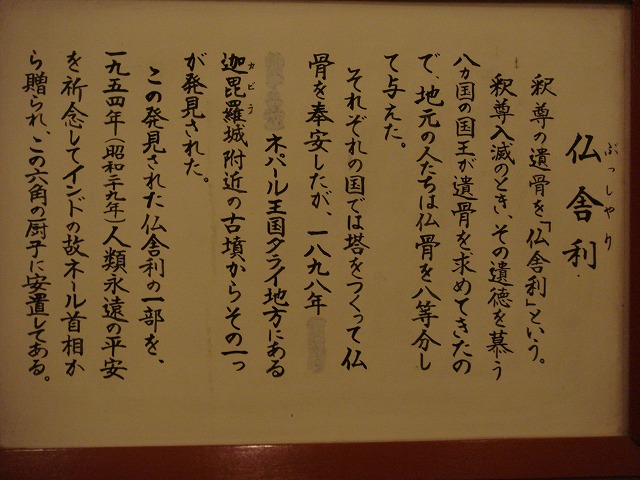 ぶっしゃり
仏舎利
釈尊の遺骨を「仏舎利」という。
釈尊入滅のとき、その遺徳を慕う
八ヵ国の国王が遺骨を求めてきたの
で、地元の人たちは仏骨を八等分し
て与えた。
それぞれの国では塔をつくって仏
骨を奉安したが、一八九八年
ネパール王国タライ地方にある
カビラ
迦毘羅城附近の古墳からその一つ
が発見された。
この発見された仏舎利の一部を、
一九五四年(昭和二十九年)人類永遠の平安
を祈念してインドの故ネール首相か
ら贈られ、この六角の厨子に安置してある。